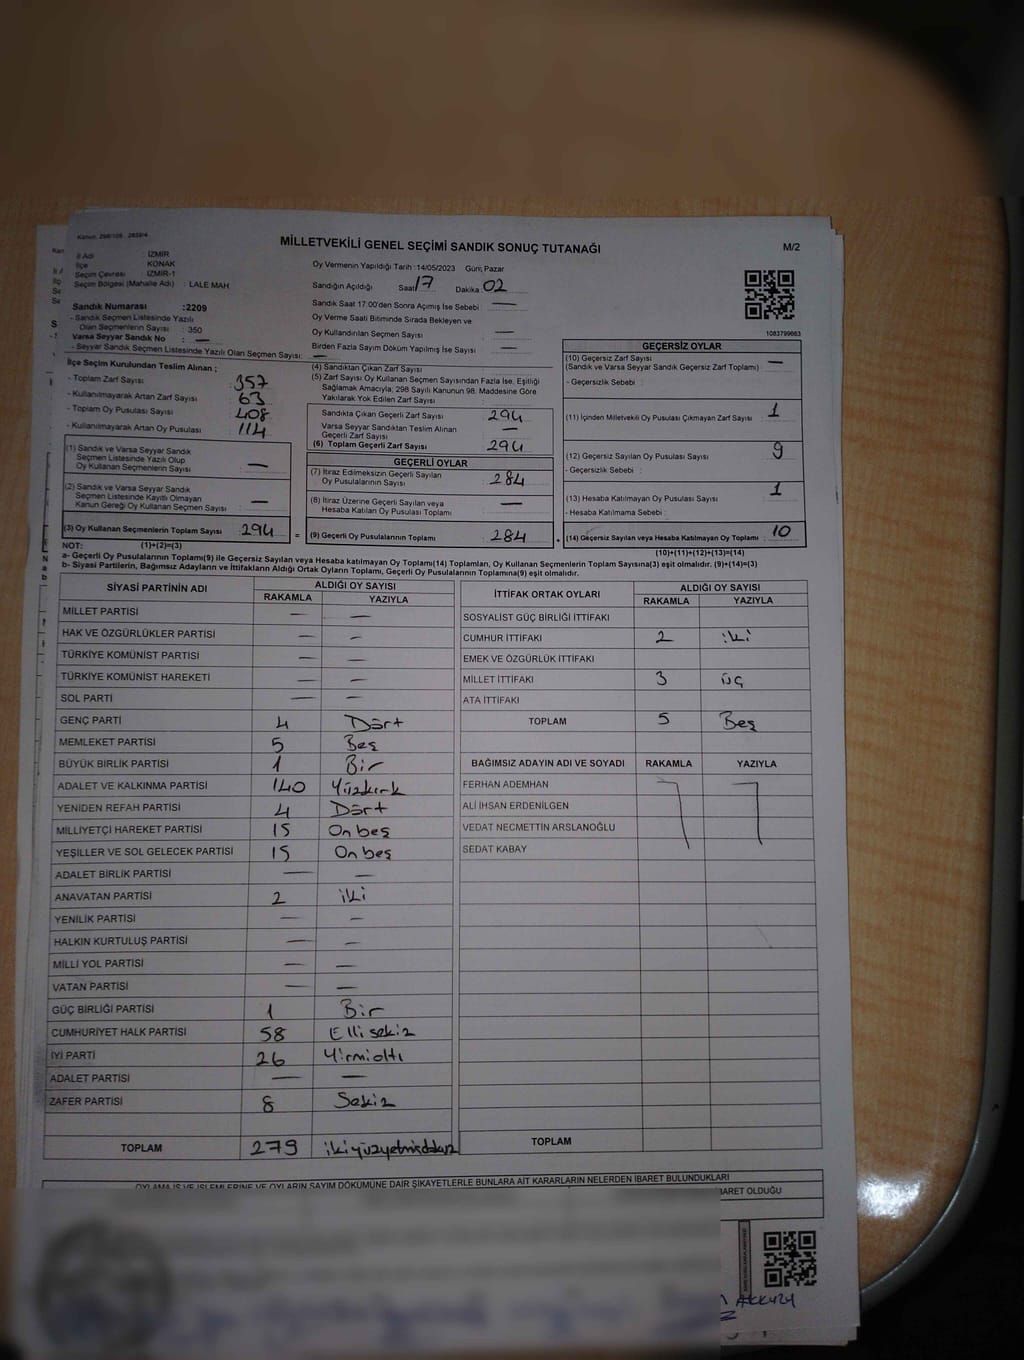 Kanun: 298/105 , 2839/4
MİLLETVEKİLİ GENEL SEÇİMİ SANDIK SONUÇ TUTANAĞI
M/2
İl Adı : İZMİR
İlçe : KONAK
Seçim Çevresi : İZMİR-1
Seçim Bölgesi (Mahalle Adı) : LALE MAH
Sandık Numarası :2209
- Sandık Seçmen Listesinde Yazılı
Olan Seçmenlerin Sayısı : 350
Varsa Seyyar Sandık No : —
- Seyyar Sandık Seçmen Listesinde Yazılı Olan Seçmen Sayısı: —
Oy Vermenin Yapıldığı Tarih :14/05/2023 Günü, Pazar
Sandığın Açıldığı Saat 17 Dakika 02
Sandık Saat 17:00'den Sonra Açılmış İse Sebebi : —
Oy Verme Saati Bitiminde Sırada Bekleyen ve
Oy Kullandırılan Seçmen Sayısı : —
Birden Fazla Sayım Döküm Yapılmış İse Sayısı : —
1083799663
İlçe Seçim Kurulundan Teslim Alınan ;
- Toplam Zarf Sayısı : 357
- Kullanılmayarak Artan Zarf Sayısı : 63
- Toplam Oy Pusulası Sayısı : 408
- Kullanılmayarak Artan Oy Pusulası : 114
(1) Sandık ve Varsa Seyyar Sandık
Seçmen Listesinde Yazılı Olup
Oy Kullanan Seçmenlerin Sayısı : —
(2) Sandık ve Varsa Seyyar Sandık
Seçmen Listesinde Kayıtlı Olmayan
Kanun Gereği Oy Kullanan Seçmen Sayısı : —
(3) Oy Kullanan Seçmenlerin Toplam Sayısı : 294
(4) Sandıktan Çıkan Zarf Sayısı :
(5) Zarf Sayısı Oy Kullanan Seçmen Sayısından Fazla İse, Eşitliği
Sağlamak Amacıyla; 298 Sayılı Kanunun 98. Maddesine Göre
Yakılarak Yok Edilen Zarf Sayısı :
Sandıkta Çıkan Geçerli Zarf Sayısı : 294
Varsa Seyyar Sandıktan Teslim Alınan
Geçerli Zarf Sayısı : —
(6) Toplam Geçerli Zarf Sayısı : 294
GEÇERLİ OYLAR
(7) İtiraz Edilmeksizin Geçerli Sayılan
Oy Pusulalarının Sayısı : 284
(8) İtiraz Üzerine Geçerli Sayılan veya
Hesaba Katılan Oy Pusulası Toplamı : —
= (9) Geçerli Oy Pusulalarının Toplamı : 284
GEÇERSİZ OYLAR
(10) Geçersiz Zarf Sayısı
(Sandık ve Varsa Seyyar Sandık Geçersiz Zarf Toplamı) : —
- Geçersizlik Sebebi :
(11) İçinden Milletvekili Oy Pusulası Çıkmayan Zarf Sayısı : 1
(12) Geçersiz Sayılan Oy Pusulası Sayısı : 9
- Geçersizlik Sebebi :
(13) Hesaba Katılmayan Oy Pusulası Sayısı : 1
- Hesaba Katılmama Sebebi :
(14) Geçersiz Sayılan veya Hesaba Katılmayan Oy Toplamı : 10
NOT: (1)+(2)=(3)
(10)+(11)+(12)+(13)=(14)
a- Geçerli Oy Pusulalarının Toplamı(9) ile Geçersiz Sayılan veya Hesaba katılmayan Oy Toplamı(14) Toplamları, Oy Kullanan Seçmenlerin Toplam Sayısına(3) eşit olmalıdır. (9)+(14)=(3)
b- Siyasi Partilerin, Bağımsız Adayların ve İttifakların Aldığı Ortak Oyların Toplamı, Geçerli Oy Pusulalarının Toplamına(9) eşit olmalıdır.
SİYASİ PARTİNİN ADI ALDIĞI OY SAYISI
RAKAMLA YAZIYLA
MİLLET PARTİSİ — —
HAK VE ÖZGÜRLÜKLER PARTİSİ — —
TÜRKİYE KOMÜNİST PARTİSİ — —
TÜRKİYE KOMÜNİST HAREKETİ — —
SOL PARTİ — —
GENÇ PARTİ 4 Dört
MEMLEKET PARTİSİ 5 Beş
BÜYÜK BİRLİK PARTİSİ 1 Bir
ADALET VE KALKINMA PARTİSİ 140 Yüzkırk
YENİDEN REFAH PARTİSİ 4 Dört
MİLLİYETÇİ HAREKET PARTİSİ 15 On beş
YEŞİLLER VE SOL GELECEK PARTİSİ 15 On beş
ADALET BİRLİK PARTİSİ — —
ANAVATAN PARTİSİ 2 iki
YENİLİK PARTİSİ — —
HALKIN KURTULUŞ PARTİSİ — —
MİLLİ YOL PARTİSİ — —
VATAN PARTİSİ — —
GÜÇ BİRLİĞİ PARTİSİ 1 Bir
CUMHURİYET HALK PARTİSİ 58 Elli sekiz
İYİ PARTİ 26 Yirmialtı
ADALET PARTİSİ — —
ZAFER PARTİSİ 8 Sekiz
TOPLAM 279 ikiyüzyetmişdokuz
İTTİFAK ORTAK OYLARI ALDIĞI OY SAYISI
RAKAMLA YAZIYLA
SOSYALİST GÜÇ BİRLİĞİ İTTİFAKI
CUMHUR İTTİFAKI 2 iki
EMEK VE ÖZGÜRLÜK İTTİFAKI
MİLLET İTTİFAKI 3 üç
ATA İTTİFAKI
TOPLAM 5 Beş
BAĞIMSIZ ADAYIN ADI VE SOYADI RAKAMLA YAZIYLA
FERHAN ADEMHAN
ALİ İHSAN ERDENİLGEN
VEDAT NECMETTİN ARSLANOĞLU
SEDAT KABAY
TOPLAM
OYLAMA İŞ VE İŞLEMLERİNE VE OYLARIN SAYIM DÖKÜMÜNE DAİR ŞİKAYETLERLE BUNLARA AİT KARARLARIN NELERDEN İBARET BULUNDUKLARI
İBARET OLDUĞU